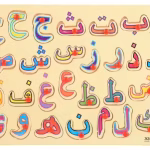 ا ب ت ث ج ح خ
د ذ ر ز س ش ص
ض ط ظ ع غ ف
ق ك ل م ن ه و ي